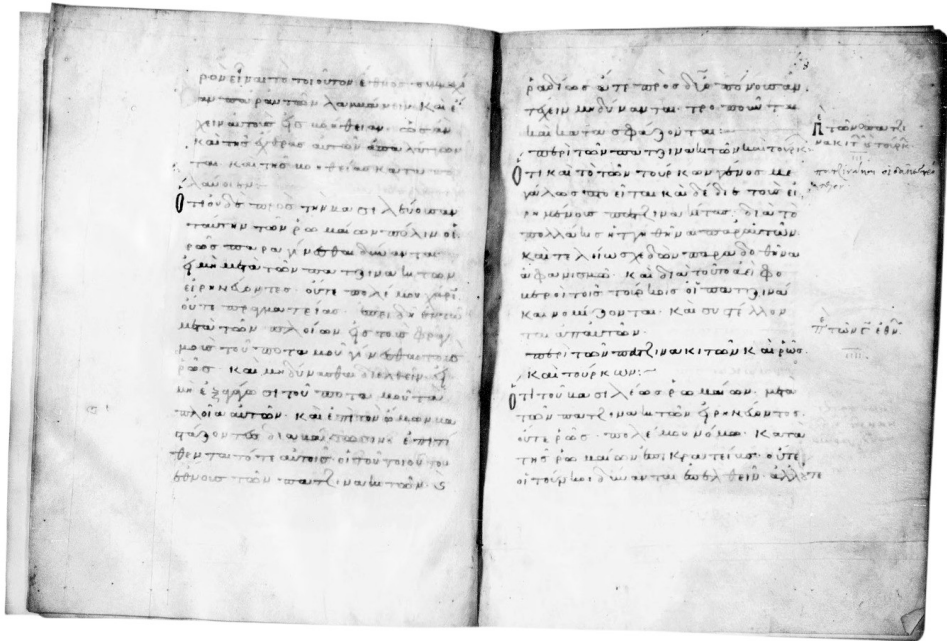 ρὸν εἶναι τὸ τοιοῦτον ἔθνος συμμαχί
αν παρ' αὐτῶν λαμβάνειν καὶ ἔ
χειν αὐτοὺς εἰς βοήθειαν. ὡς ἂν
καὶ τῆς ἔχθρας αὐτῶν ἀπαλύττων
ται καὶ τῆς βοηθείας καταπο
λαύοιεν:
Ὅτι οὐδὲ πρὸς τὴν βασιλεύουσαν
ταύτην τῶν ῥωμαίων πόλιν οἱ
ρῶς παραγίνεσθαι δύνανται
εἰ μὴ μετὰ τῶν πατζινακιτῶν
εἰρηνεύοντες. οὔτε πολέμου χάριν
οὔτε πραγματείας. ἐπειδὴ ἐν τῶ
μετὰ τῶν πλοίων εἰς τοὺς φραγ
μοὺς τοῦ ποταμοῦ γίνεσθαι τοὺς
ῥῶς. καὶ μὴ δύνασθαι διελθεῖν. εἰ
μὴ ἐξαγάγωσι τοῦ ποταμοῦ τὰ
πλοῖα αὐτῶν. καὶ ἐπὶ τῶν ὤμων βα
στάζοντες διαβιβάσωσιν. ἐπιτί
θενται τότε αὐτοῖς οἱ τοῦ τοιούτου
ἔθνους τῶν πατζινακιτῶν. καὶ
ῥαδίως ἅτε πρὸς δύο πόνους ἀν
τέχειν μὴ δύνανται. τροποῦνται
καὶ κατασφάζονται:
περὶ τῶν πατζινακιτῶν καὶ τούρκ
Ὅτι καὶ τὸ τῶν τούρκων γένος με
γάλως πτοεῖται καὶ δέδιε τοὺς εἰ
ρημένους πατζινακίτας. διὰ τὸ
πολλάκις ἡττηθῆναι παρ' αὐτῶν.
καὶ τελείως σχεδὸν παραδοθῆναι
ἀφανισμῶ. καὶ διὰ τοῦτο ἀεὶ φο
βεροὶ τοῖς τούρκοις οἱ πατζινακί
ται νομίζονται. καὶ συστέλλον
ται ἀπ' αὐτῶν.
περὶ τῶν πατζινακιτῶν καὶ ῥῶς.
καὶ τούρκων:
Ὅτι τοῦ βασιλέως ῥωμαίων. μετὰ
τῶν πατζινακιτῶν εἰρηνεύοντος.
οὔτε ῥῶς. πολέμου νόμω. κατὰ
τῆς ῥωμαίων ἐπικρατείας. οὔτε
οἱ τοῦρκοι δύνανται ἐπελθεῖν. ἀλλ' οὔτε
π τῶν πατζι
νακιτ τουρκ
π τῶν γ ἐθν